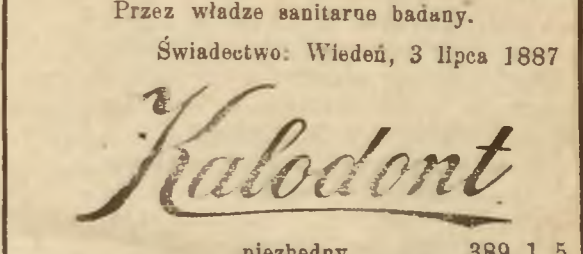 Przez władze sanitarne badany.
Świadectwo: Wiedeń, 3 lipca 1887
Kalodont
niezbędny 389 1 5